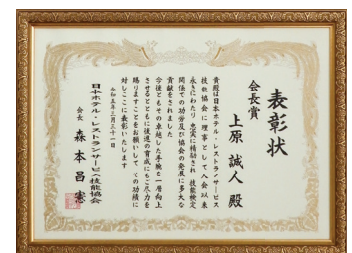 表彰状
会長賞
上原 誠人 殿
貴殿は日本ホテル・レストランサービス
技能協会に理事として入会以来
永きにわたり忠実に精励され技能検定
関係での功労及び協会の発展に多大な
貢献をされました
今後ともその卓越した手腕を一層向上
させるとともに後進の育成にもご尽力を
賜りますことをお願いしてその功績に
対しここに表彰いたします
令和五年三月三十一日
日本ホテル・レストランサービス技能協会
会長 森本昌憲